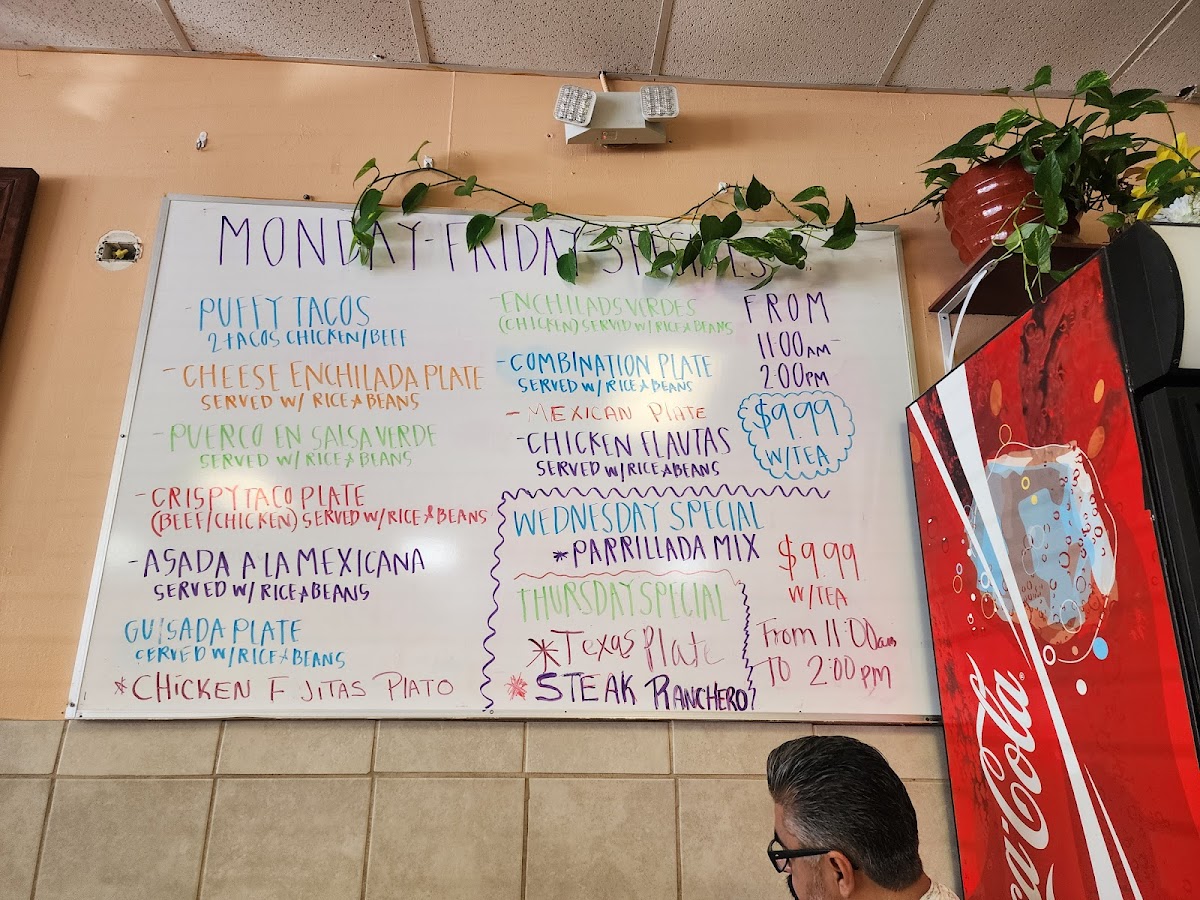 MONDAY-FRIDAY
- PUFFY TACOS
2 TACOS CHICKEN/BEEF
- CHEESE ENCHILADA PLATE
SERVED W/ RICE & BEANS
- PUERCO EN SALSA VERDE
SERVED W/ RICE & BEANS
- CRISPY TACO PLATE
(BEEF/CHICKEN) SERVED W/ RICE & BEANS
- ASADA A LA MEXICANA
SERVED W/ RICE & BEANS
GUISADA PLATE
SERVED W/ RICE & BEANS
* CHICKEN F JITAS PLATO
- ENCHILADS VERDES
(CHICKEN) SERVED W/ RICE & BEANS
- COMBINATION PLATE
SERVED W/ RICE & BEANS
- MEXICAN PLATE
- CHICKEN FLAUTAS
SERVED W/ RICE & BEANS
FROM
11:00 AM -
2:00 PM
$9.99
W/TEA
WEDNESDAY SPECIAL
* PARRILLADA MIX
$9.99
W/TEA
THURSDAY SPECIAL
* Texas Plate
* STEAK RANCHERO
From 11:00 am
TO 2:00 pm
Coca-Cola